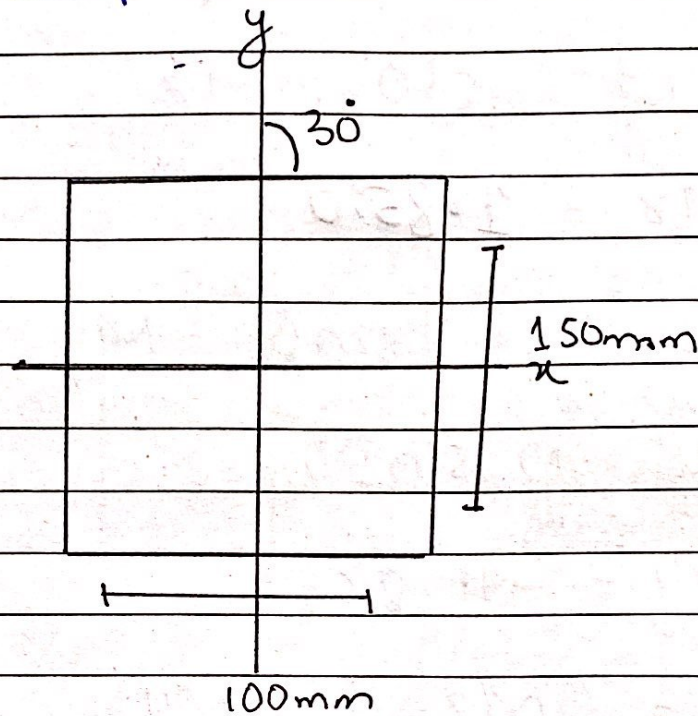 y
30°
150mm
x
100mm